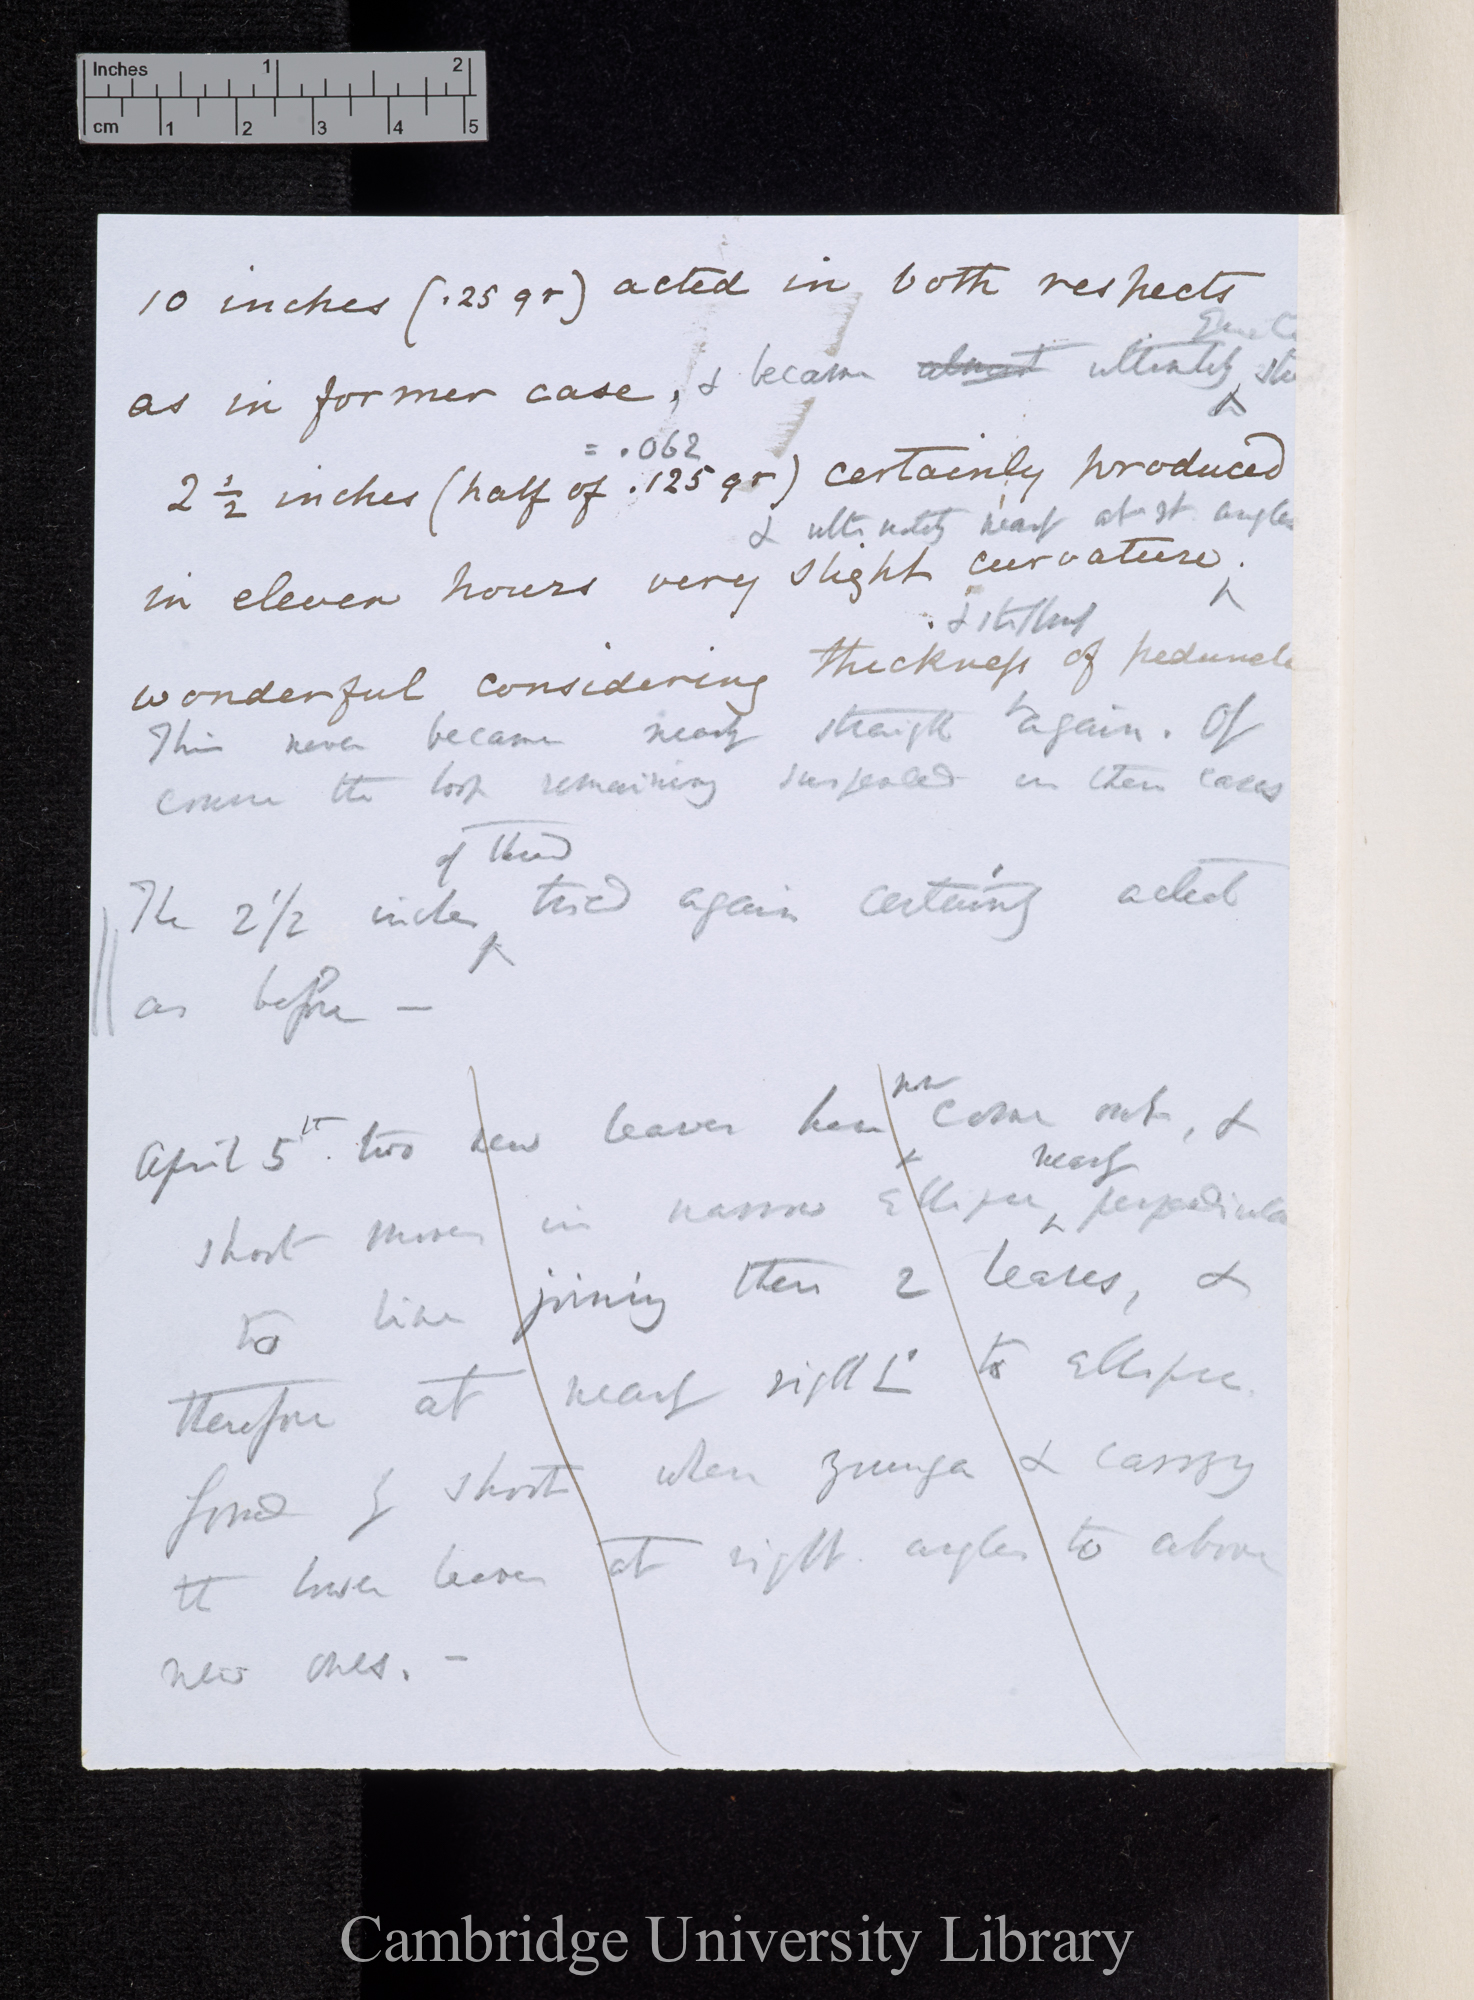 Inches 1 2
cm 1 2 3 4 5
10 inches (.25 gr) acted in both respects
as in former case, & became almost ultimately
= .062
2 1/2 inches (half of .125 gr) certainly produced
& ultimately nearly at rt. angles
in eleven hours very slight curvature.
& stiffness
wonderful considering thickness of peduncle
This never became nearly straight again. Of
course the loop remaining suspended in these cases
of thread
The 2 1/2 inches tried again certainly acted
as before —
now
April 5th. two new leaves have come out, &
nearly
shoot moves in narrow ellipse perpendicular
to line joining these 2 leaves, &
therefore at nearly right to ellipse
formed by shoot when younger & carrying
the lower leaves at right angles to above
new ones. —
Cambridge University Library